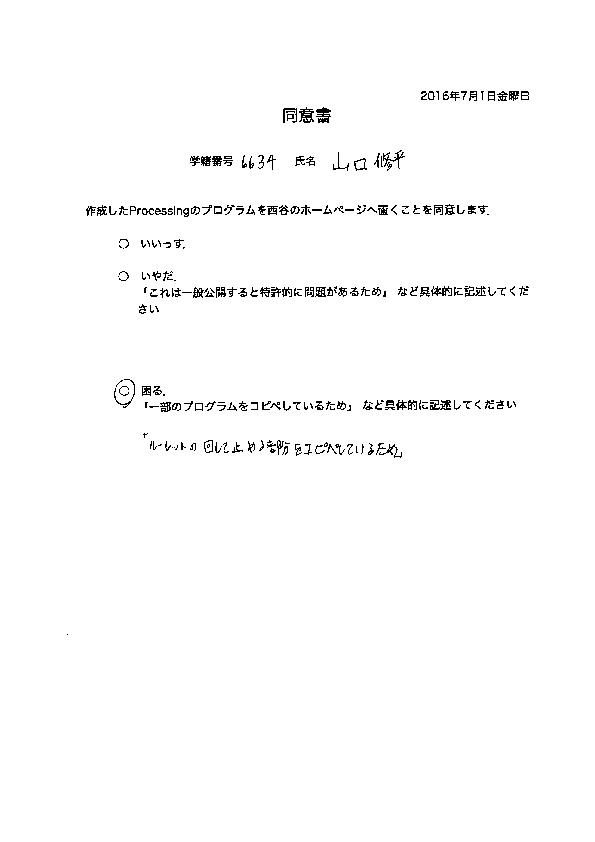 2016年7月1日金曜日
同意書
学籍番号 6634 氏名 山口 修平
作成したProcessingのプログラムを西谷のホームページへ置くことを同意します.
○ いいっす.
○ いやだ.
「これは一般公開すると特許的に問題があるため」 など具体的に記述してくだ
さい
○ 困る.
「一部のプログラムをコピペしているため」 など具体的に記述してください
「ルーレットの回して止める箇所をコピペしているため」